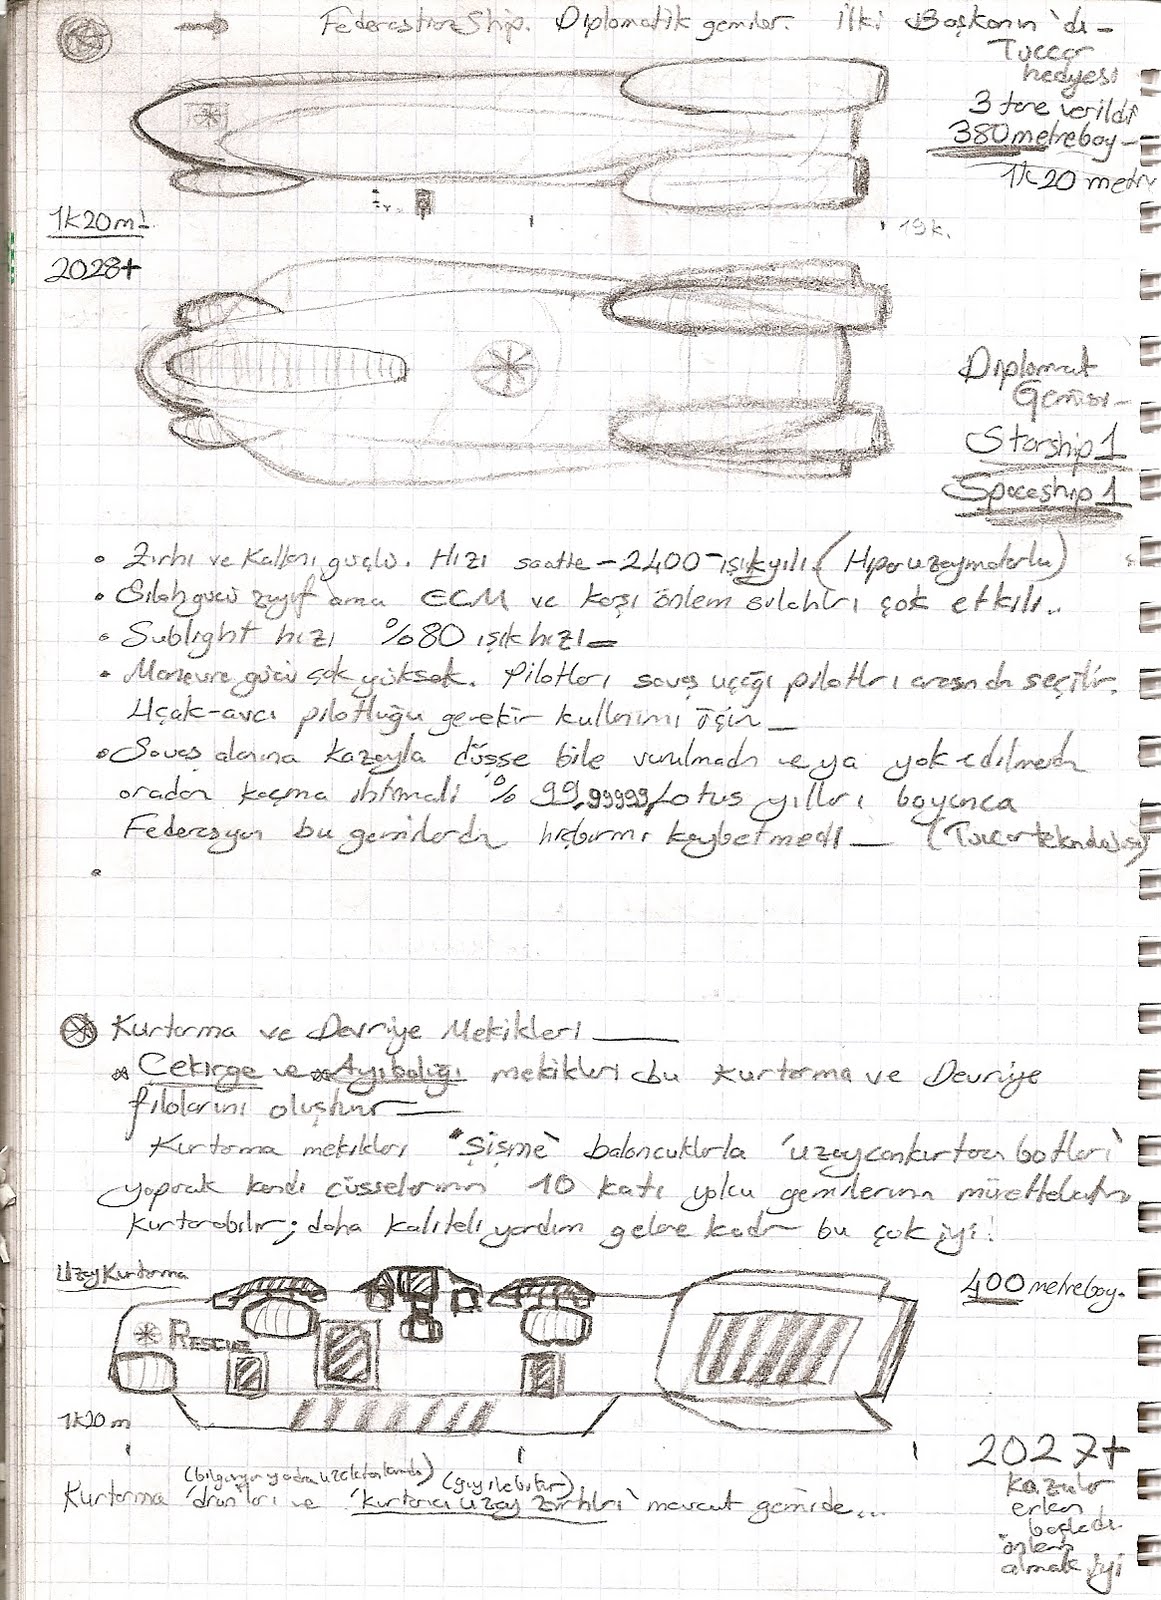 Federastion Ship. Diplomatik gemiler. İlki Başkanın'dı-
Tüccar
hediyesi
3 tane verildi
380 metre boy-
1k 20 metre
1k20m!
19k.
2028+
Diplomat
Gemisi-
Starship 1
Spaceship 1
• Zırhı ve Kalkanı güçlü. Hızı saatte - 2400 - ışıkyılı (Hiperuzaymotorlu)
• Silah gücü zayıf ama ECM ve karşı önlem silahları çok etkili..
• Sublight hızı %80 ışık hızı
• Manevra gücü çok yüksek. Pilotları savaş uçağı pilotları arasından seçilir.
Uçak-avcı pilotluğu gerekir kullanımı için
• Savaş alanına kazayla düşse bile vurulmadan veya yok edilmeden
oradan kaçma ihtimali %99,99999, Lotus yılları boyunca
Federasyon bu gemilerden hiçbirini kaybetmedi (Tüccar teknolojisi)
•
Kurtarma ve Devriye Mekikleri
Çekirge ve Ayıbalığı mekikleri bu Kurtarma ve Devriye
filolarını oluşturur
Kurtarma mekikleri "Şişme" baloncuklarla 'uzaycankurtaran botları'
yaparak kendi cüsselerinin 10 katı yolcu gemilerinin mürettebatını
kurtarabilir; daha kaliteli yardım gelene kadar bu çok iyi!
Uzay Kurtarma
400 metre boy.
RESCUE
1k20m
2027+
kazalar
erken
başladı
önlem
almak iyi
(bilgisayar yada uzaktan kumanda) (giyilebilir)
Kurtarma 'dron'ları ve 'kurtarıcı uzay zırhları' mevcut gemide...